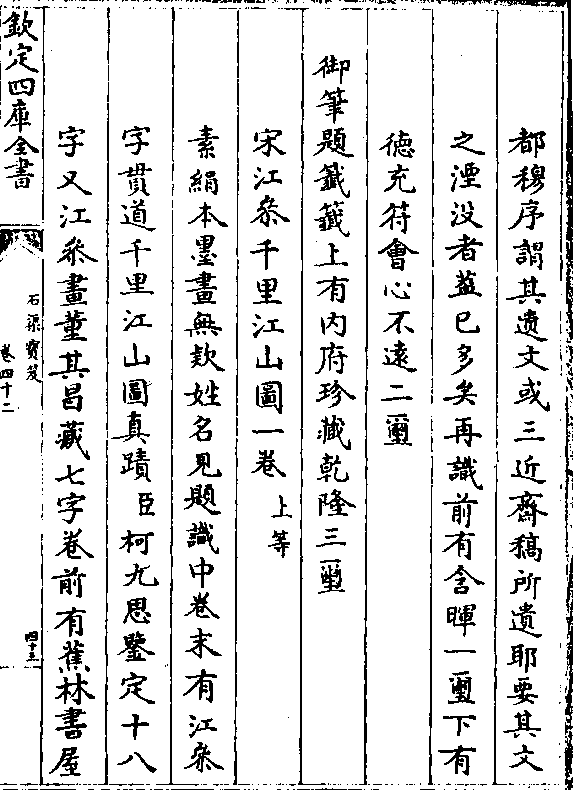 都穆序謂其遺文或三近齋稿所遺耶要其文
之湮沒者葢已多矣再識前有含暉一璽下有
德充符會心不遠二璽
御筆題籤籤上有內府珍藏乾隆三璽
宋江叅千里江山圖一卷 上等
素絹本墨畫無欵姓名見題識中卷末有江叅
字貫道千里江山圖真蹟臣柯九思鑒定十八
字又江叅畫董其昌藏七字卷前有蕉林書屋
欽定四庫全書
石渠寶笈
卷四十二
四十三